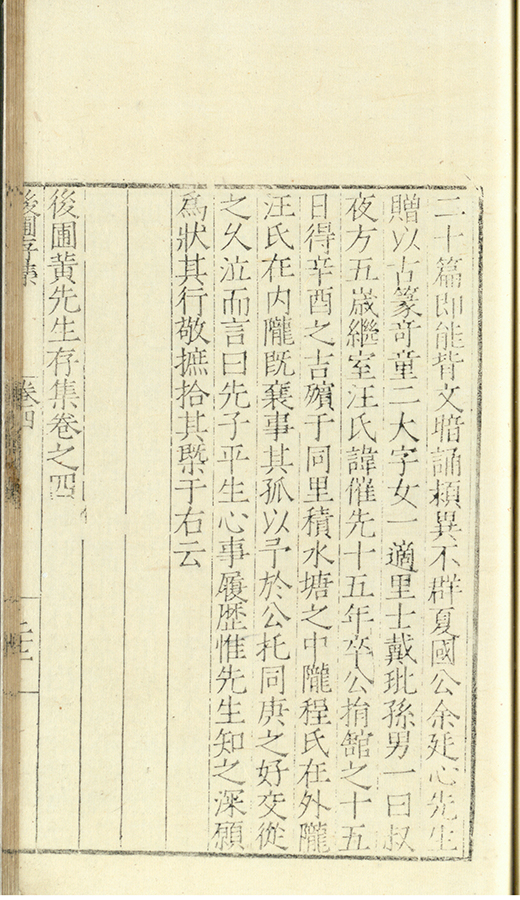 二十篇即能背文暗誦頴異不群夏國公余廷心先生
贈以古篆竒童二大字女一適里士戴玭孫男一曰叔
夜方五歳繼室汪氏諱催先十五年卒公捐舘之十五
日得辛酉之吉殯于同里積水塘之中隴程氏在外隴
汪氏在内隴既襄事其孤以予於公托同庚之好交從
之久泣而言曰先子平生心事履歴惟先生知之深願
為狀其行敬摭拾其槩于右云
後圃黄先生存集卷之四
後圃存集
卷四